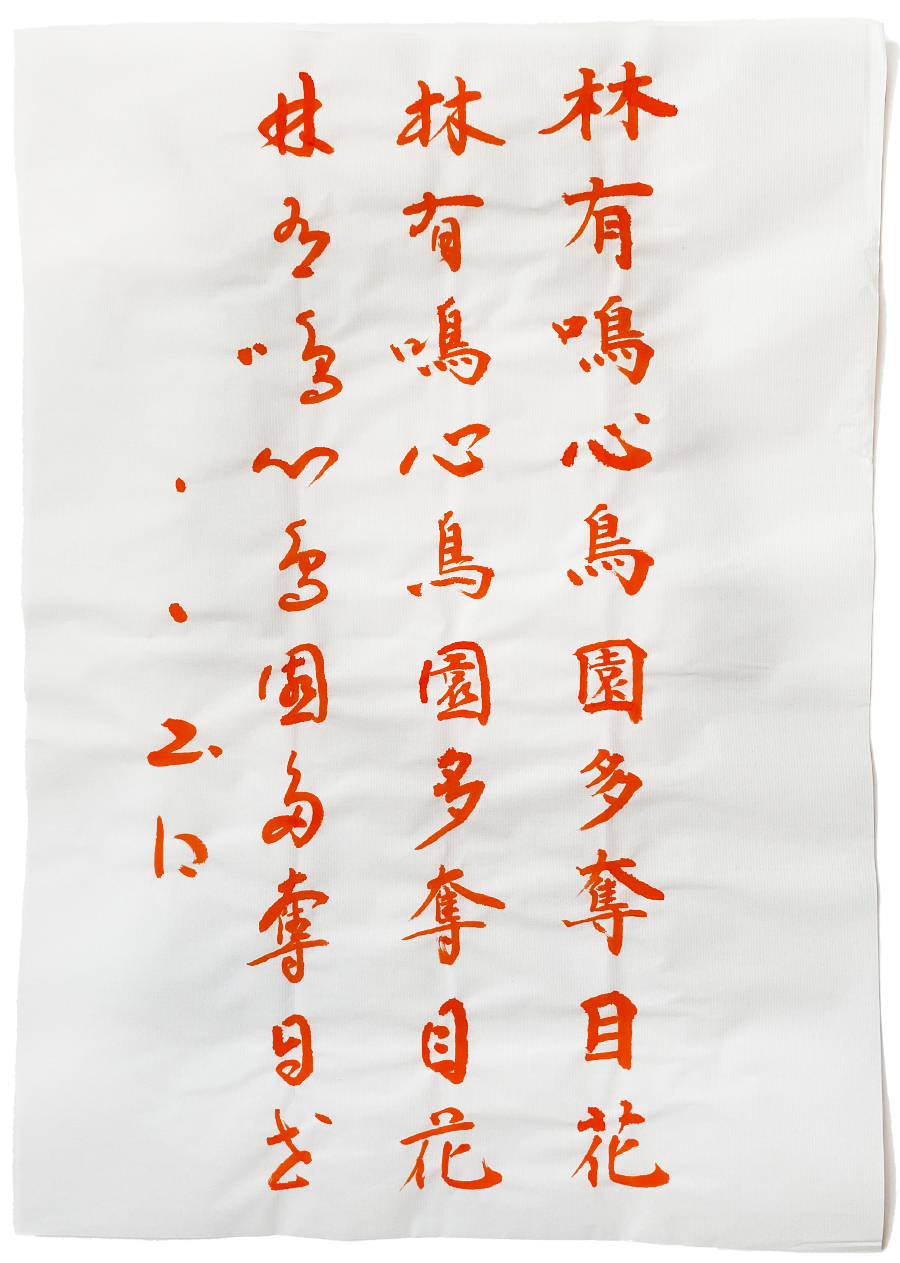 林有鳴心鳥園多奪目花
林有鳴心鳥園多奪目花
林有鳴心鳥園多奪目花